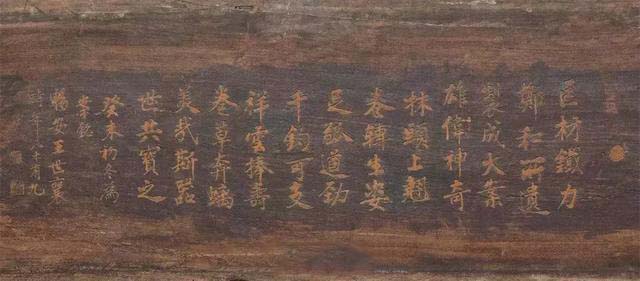 巨材鐵力
鄭和所遺
製成大案
雄偉神奇
抹頭上翹
卷轉生姿
足弧遒勁
千鈞可支
祥雲捧壽
卷草奔螭
美哉斯器
世共寶之
癸未初冬為
案銘
暢安王世襄
時年八十有九